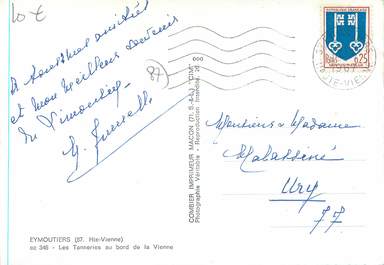 10 €
87
A tous mes amitiés
et mon meilleur souvenir
du Limousin
RÉPUBLIQUE FRANÇAISE
0,25
HTE-VIEN
COMBIER IMPRIMEUR MACON (71. S.-&-L.) "CIM"
Photographie Véritable - Reproduction Interdite
Monsieur & Madame
Malassiné
Ury
77
EYMOUTIERS (87. Hte-Vienne)
- Les Tanneries au bord de la Vienne